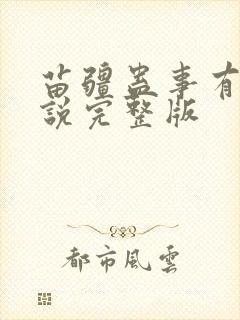 苗疆蛊事有
說完整版
都市風雲